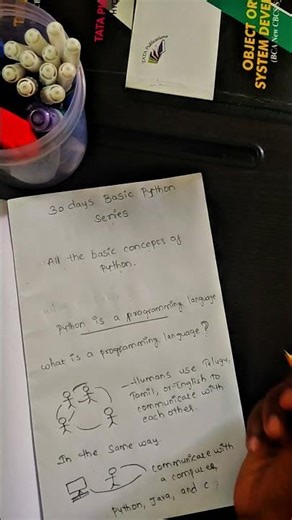 TATA Publications
OBJECT OR
SYSTEM DEVE
(BCA New CBCS
30 days Basic Python
Series
All the basic concepts of
Python.
Python is a programming language
What is a programming language?
- Humans use Telugu,
Tamil, or English to
communicate with
each other.
In the same way.
communicate with
a computer,
Python, Java, and C